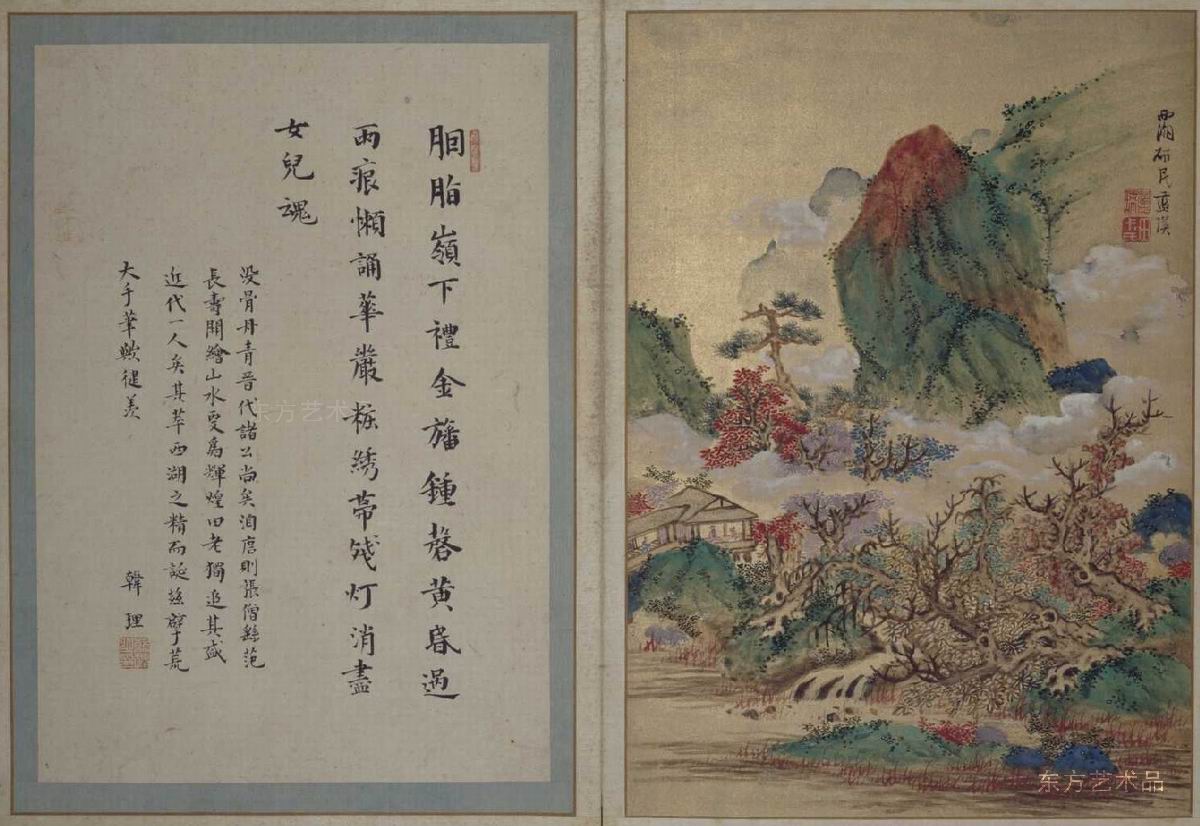 西湖研民藍瑛
胭脂嶺下禮金旛鍾磬黄昏過
雨痕懶誦華嚴粧綉帶残灯消盡
女兒魂
没骨丹青晋代諸公尚矣洎唐則張僧繇范
長壽開繪山水更爲輝煌田老獨追其盛
近代一人矣其萃西湖之精而誕茲擘荒
大手筆歟健羡
韓理
东方艺术
东方艺术品